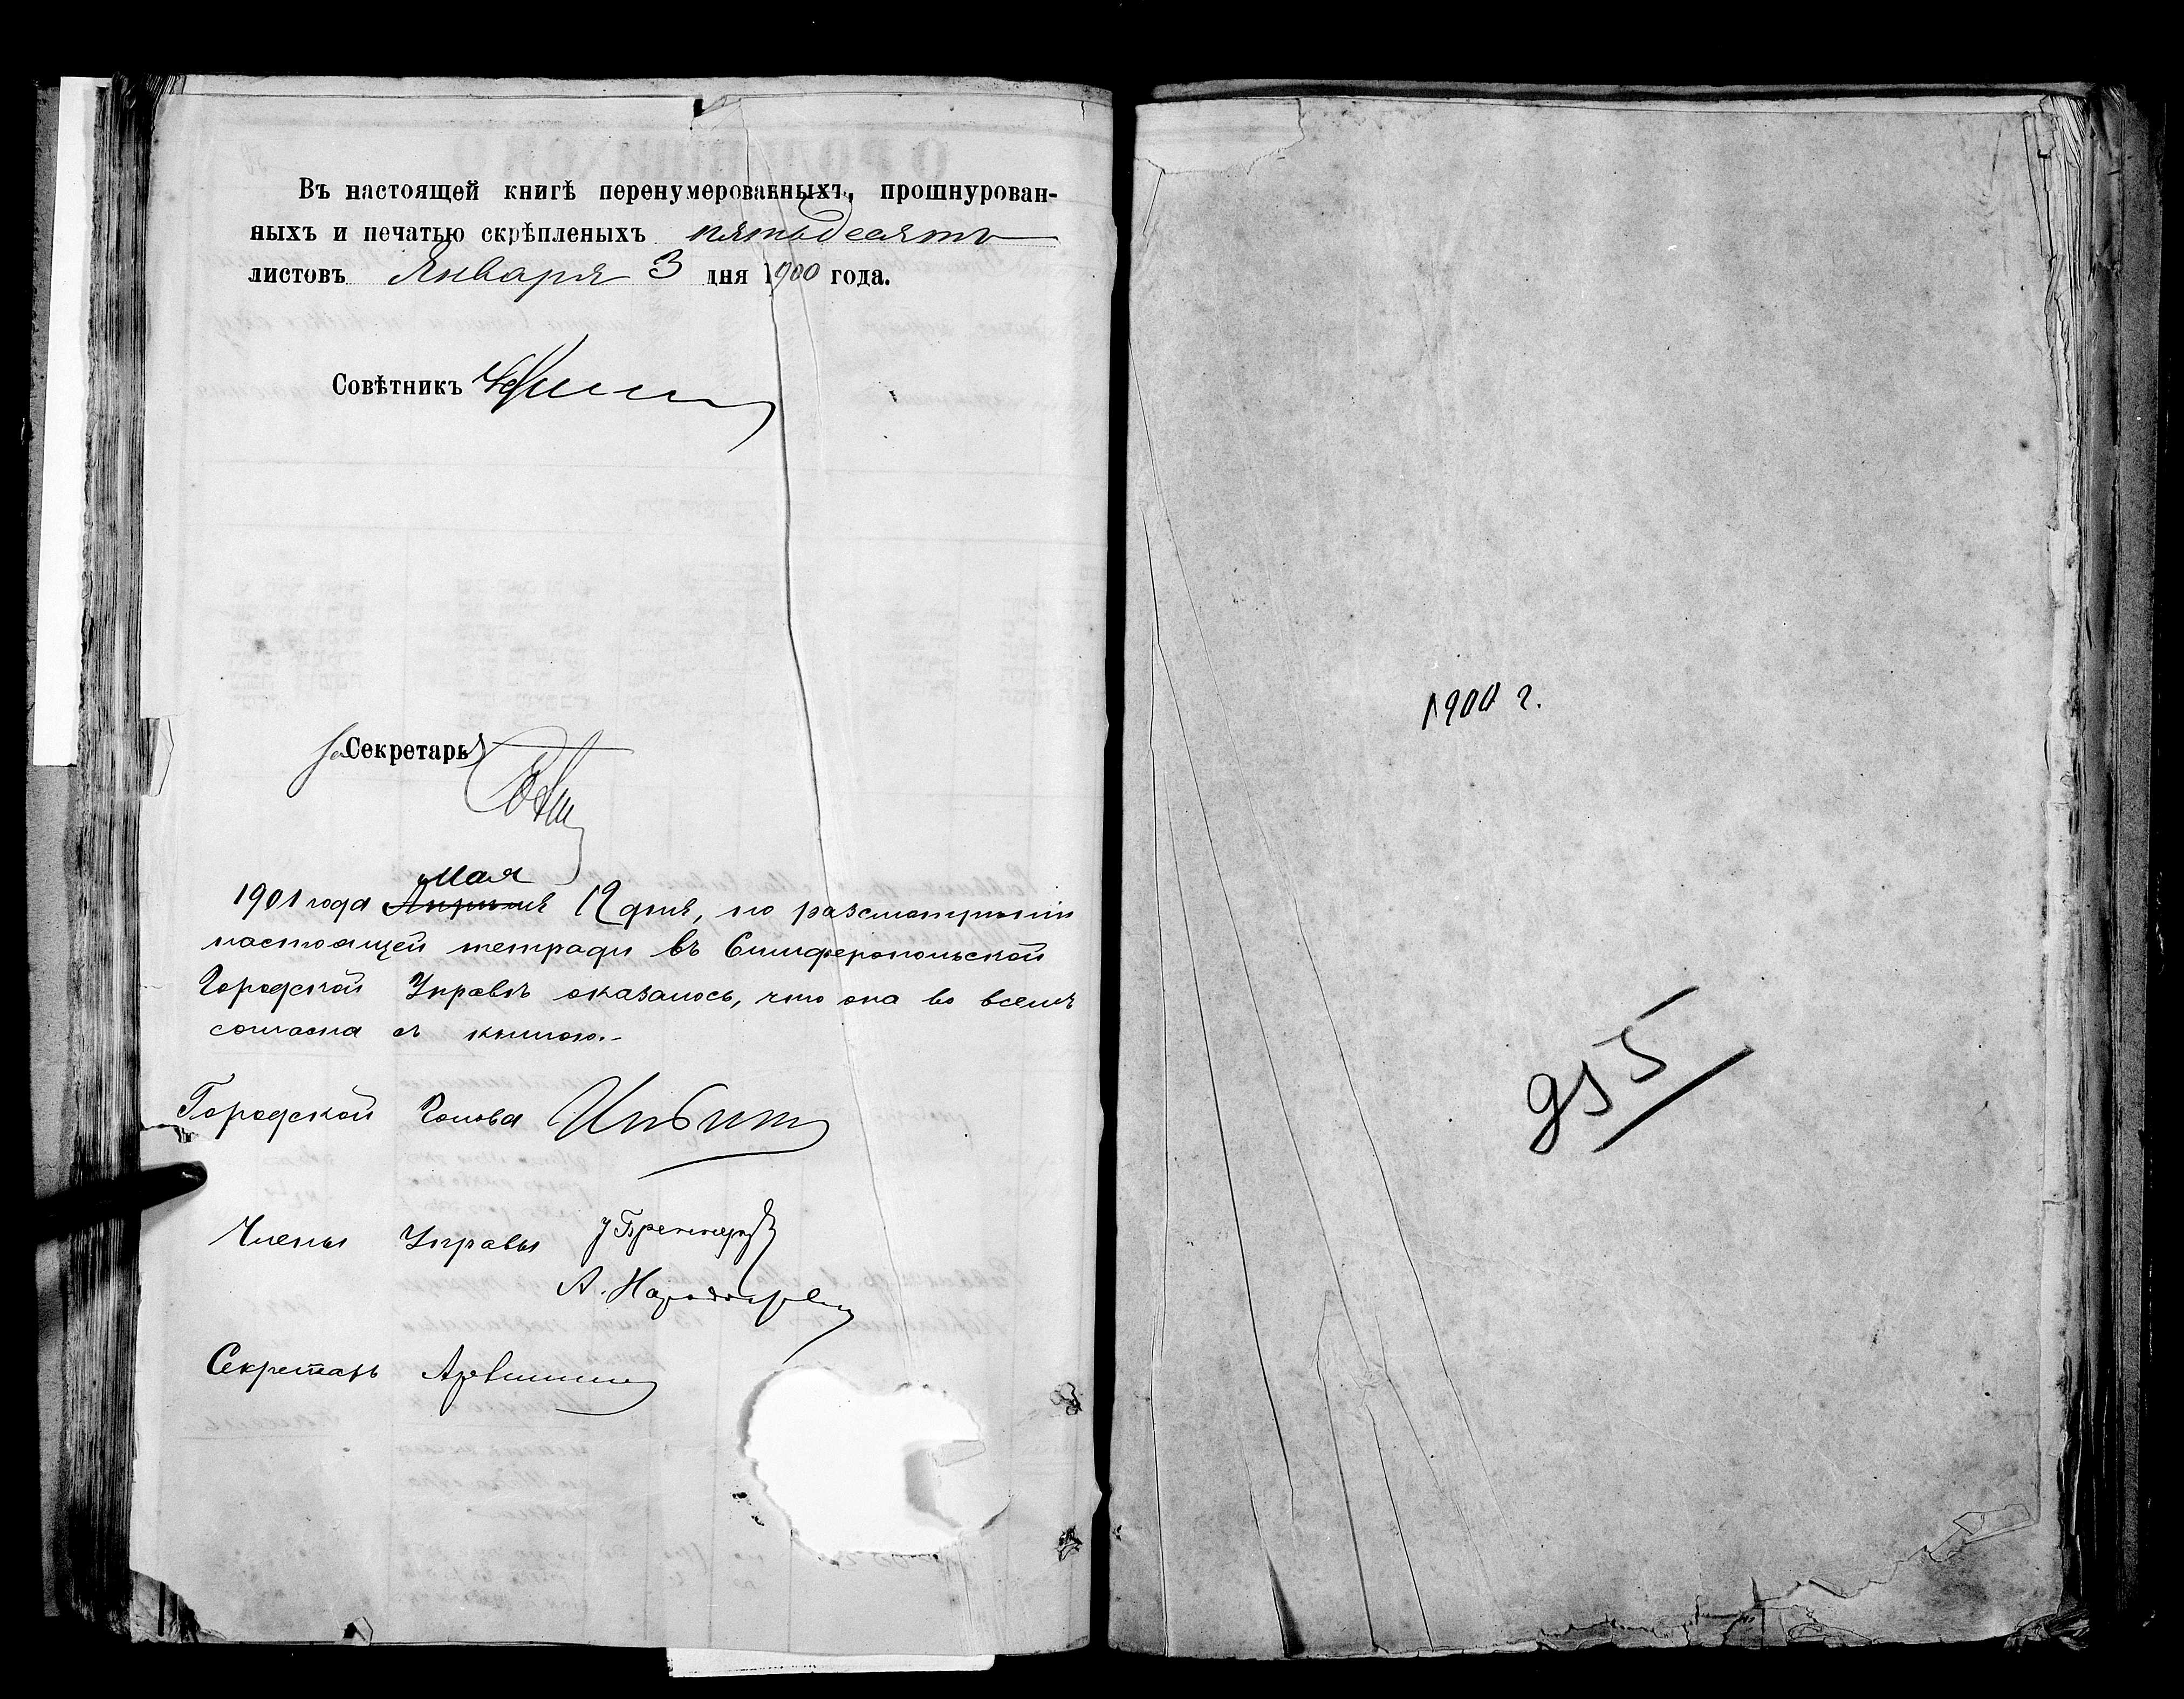 Въ настоящей книгѣ перенумерованныхъ, прошнурован-
ныхъ и печатью скрѣпленыхъ пятьдесятъ
листовъ Января 3 дня 1900 года.
Совѣтникъ
за Секретарь
Мая
1901 года Апрѣля 12 дня, по разсмотрѣнiи
настоящей тетради въ Симферопольской
Городской Управѣ оказалось, что она во всемъ
согласна съ книгою.-
Городской Голова
Члены Управы
А.
Секретарь
1900 г.
955